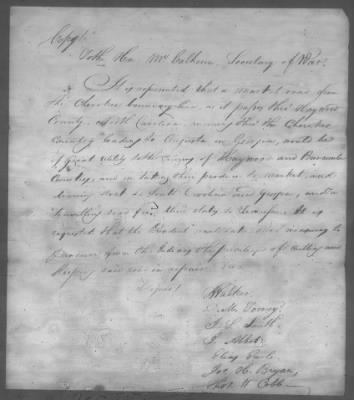 Copy
To the Hon. Mr Calhoun Secretary of War.
It is represented that a market road from
the Cherokee boundary line, as it passes thro' Haywood
County, North Carolina, running thro' the Cherokee
Country leading to Augusta in Georgia, would be
of great utility to the citizens of Haywood and Buncombe
Counties, and in taking their produce to market, and
driving stock to South Carolina and Georgia, and a
travelling road from this State to Tennessee. It is
requested that the President would take such measures to
procure from the Indians the privilege of cutting and
keeping said road in repair
Signed
F. Walker
J. S. Smith
J. Abbott
Elias Earle
Jos. H. Bryan
Thos. W. Cobb